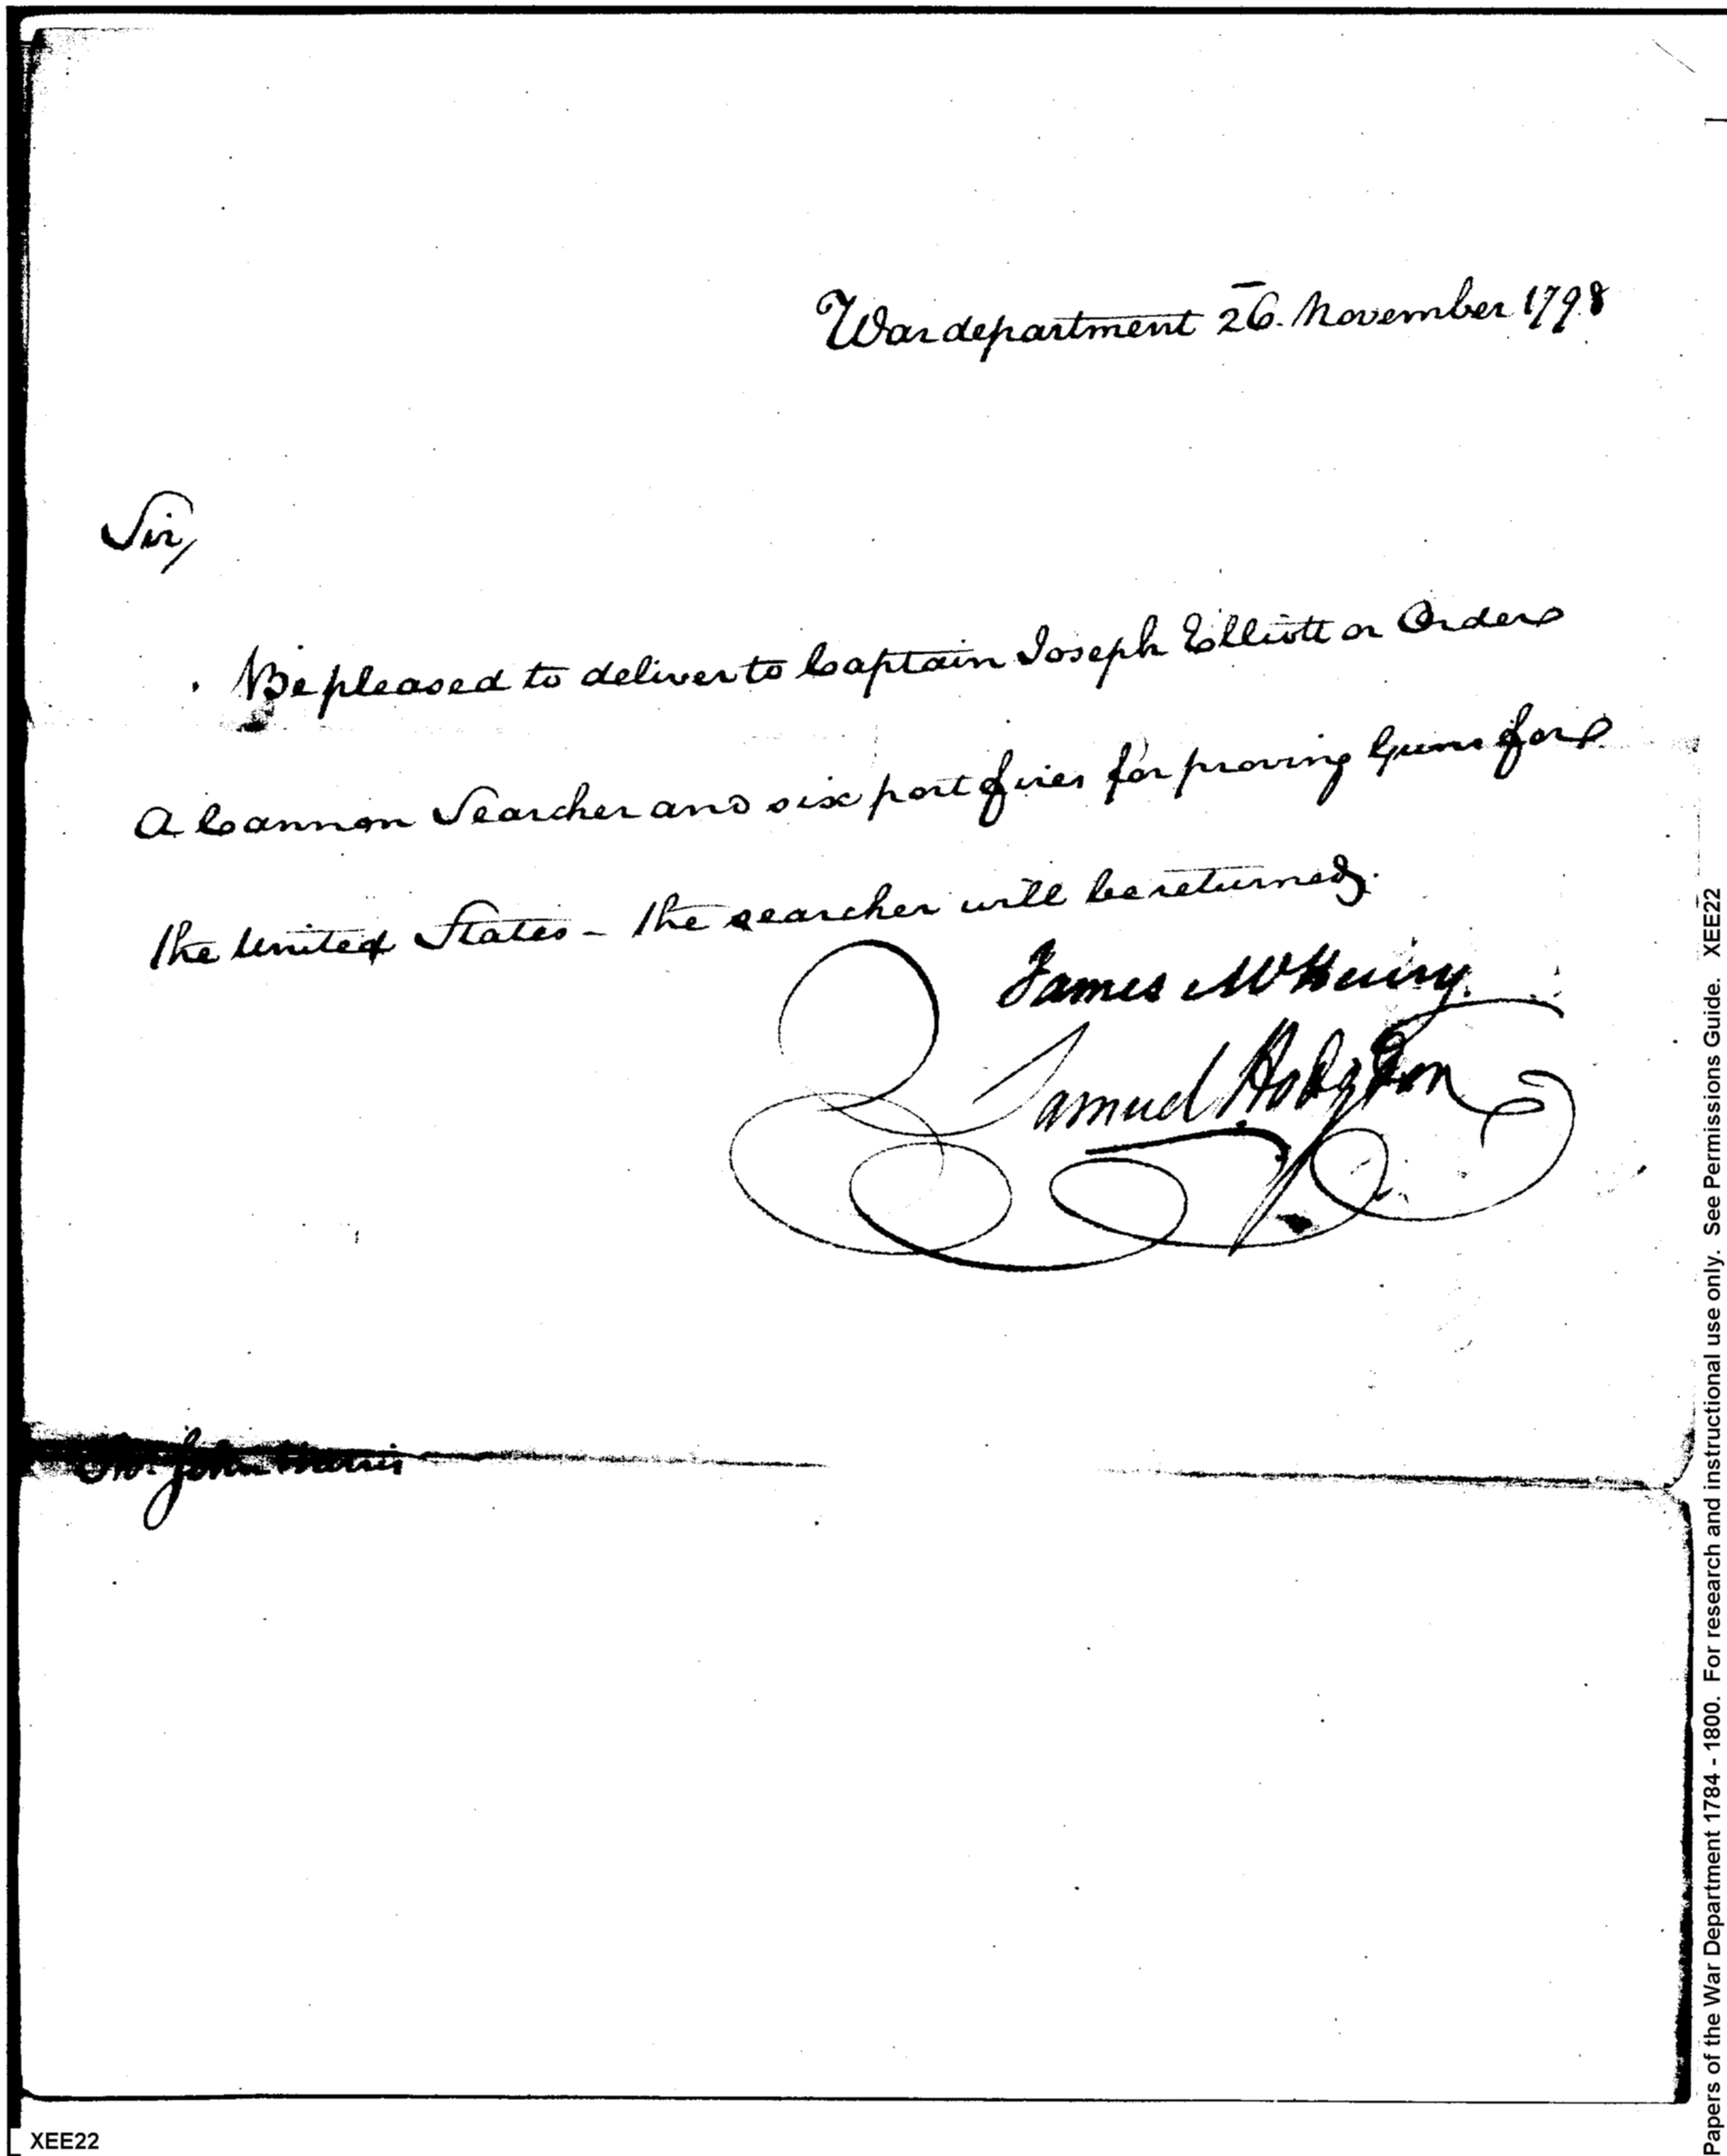 War department 26. November 1798
Sir,
Be pleased to deliver to Captain Joseph Elliott or Order
A Cannon Searcher and six port fires for proving Guns for
the United States - the searcher will be returned.
James McHenry.
Samuel Hodgdon
Mr. John Harris
XEE22
Papers of the War Department 1784 - 1800. For research and instructional use only. See Permissions Guide. XEE22